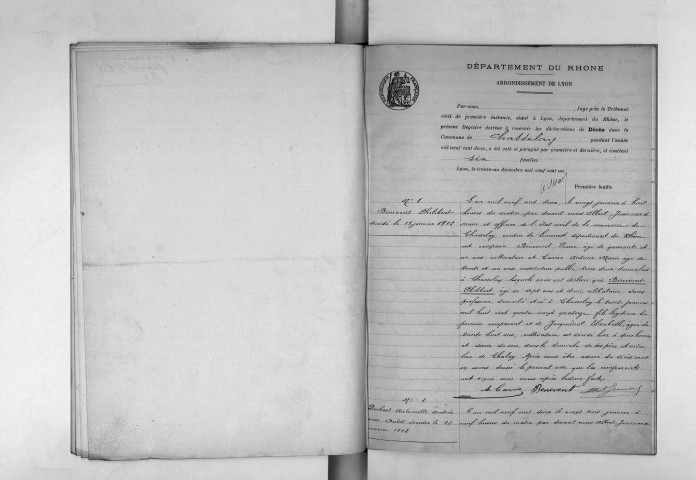 DÉPARTEMENT DU RHONE
ARRONDISSEMENT DE LYON
Par nous, Juge près le Tribunal
civil de première instance, séant à Lyon, département du Rhône, le
présent Registre destiné à recevoir les déclarations de Décès dans le
Commune de pendant l'année
mil neuf cent deux, a été coté et paraphé par première et dernière, et contient
six feuillets.
Lyon, le trente-un décembre mil neuf cent un.
Première feuille
N° 1
Bénévent Philibert
décédé le janvier 1902
L'an mil neuf cent deux, le vingt janvier à huit
heures du matin par devant nous Albert Jeannard
maire et officier de l'état civil de la commune de
Chasselay, canton de Limonest département du Rhône
ont comparu Bénévent Pierre âgé de quarante et
un ans cultivateur et Carra Antoine Marie âgé de
trente et un ans instituteur public, tous deux domiciliés
à Chasselay lesquels nous ont déclaré que Bénévent
Philibert âgé de sept ans et demi célibataire sans
profession, domicilié et né à Chasselay le trente janvier
mil huit cent quatre vingt quatorze fils légitime du
premier comparant et de Jacquinot Elisabeth âgée de
trente huit ans, cultivateur est décédé hier à heures
et demie du soir dans le domicile de ses père et mère
Après nous être assuré du décès nous
en avons dressé le présent acte que les comparants
ont signé avec nous après lecture faite
A. Carra Bénévent
N° 2
Antoinette
décédée le 23
janvier 1902
L'an mil neuf cent deux le vingt trois janvier à
neuf heures du matin par devant nous Albert Jeannard